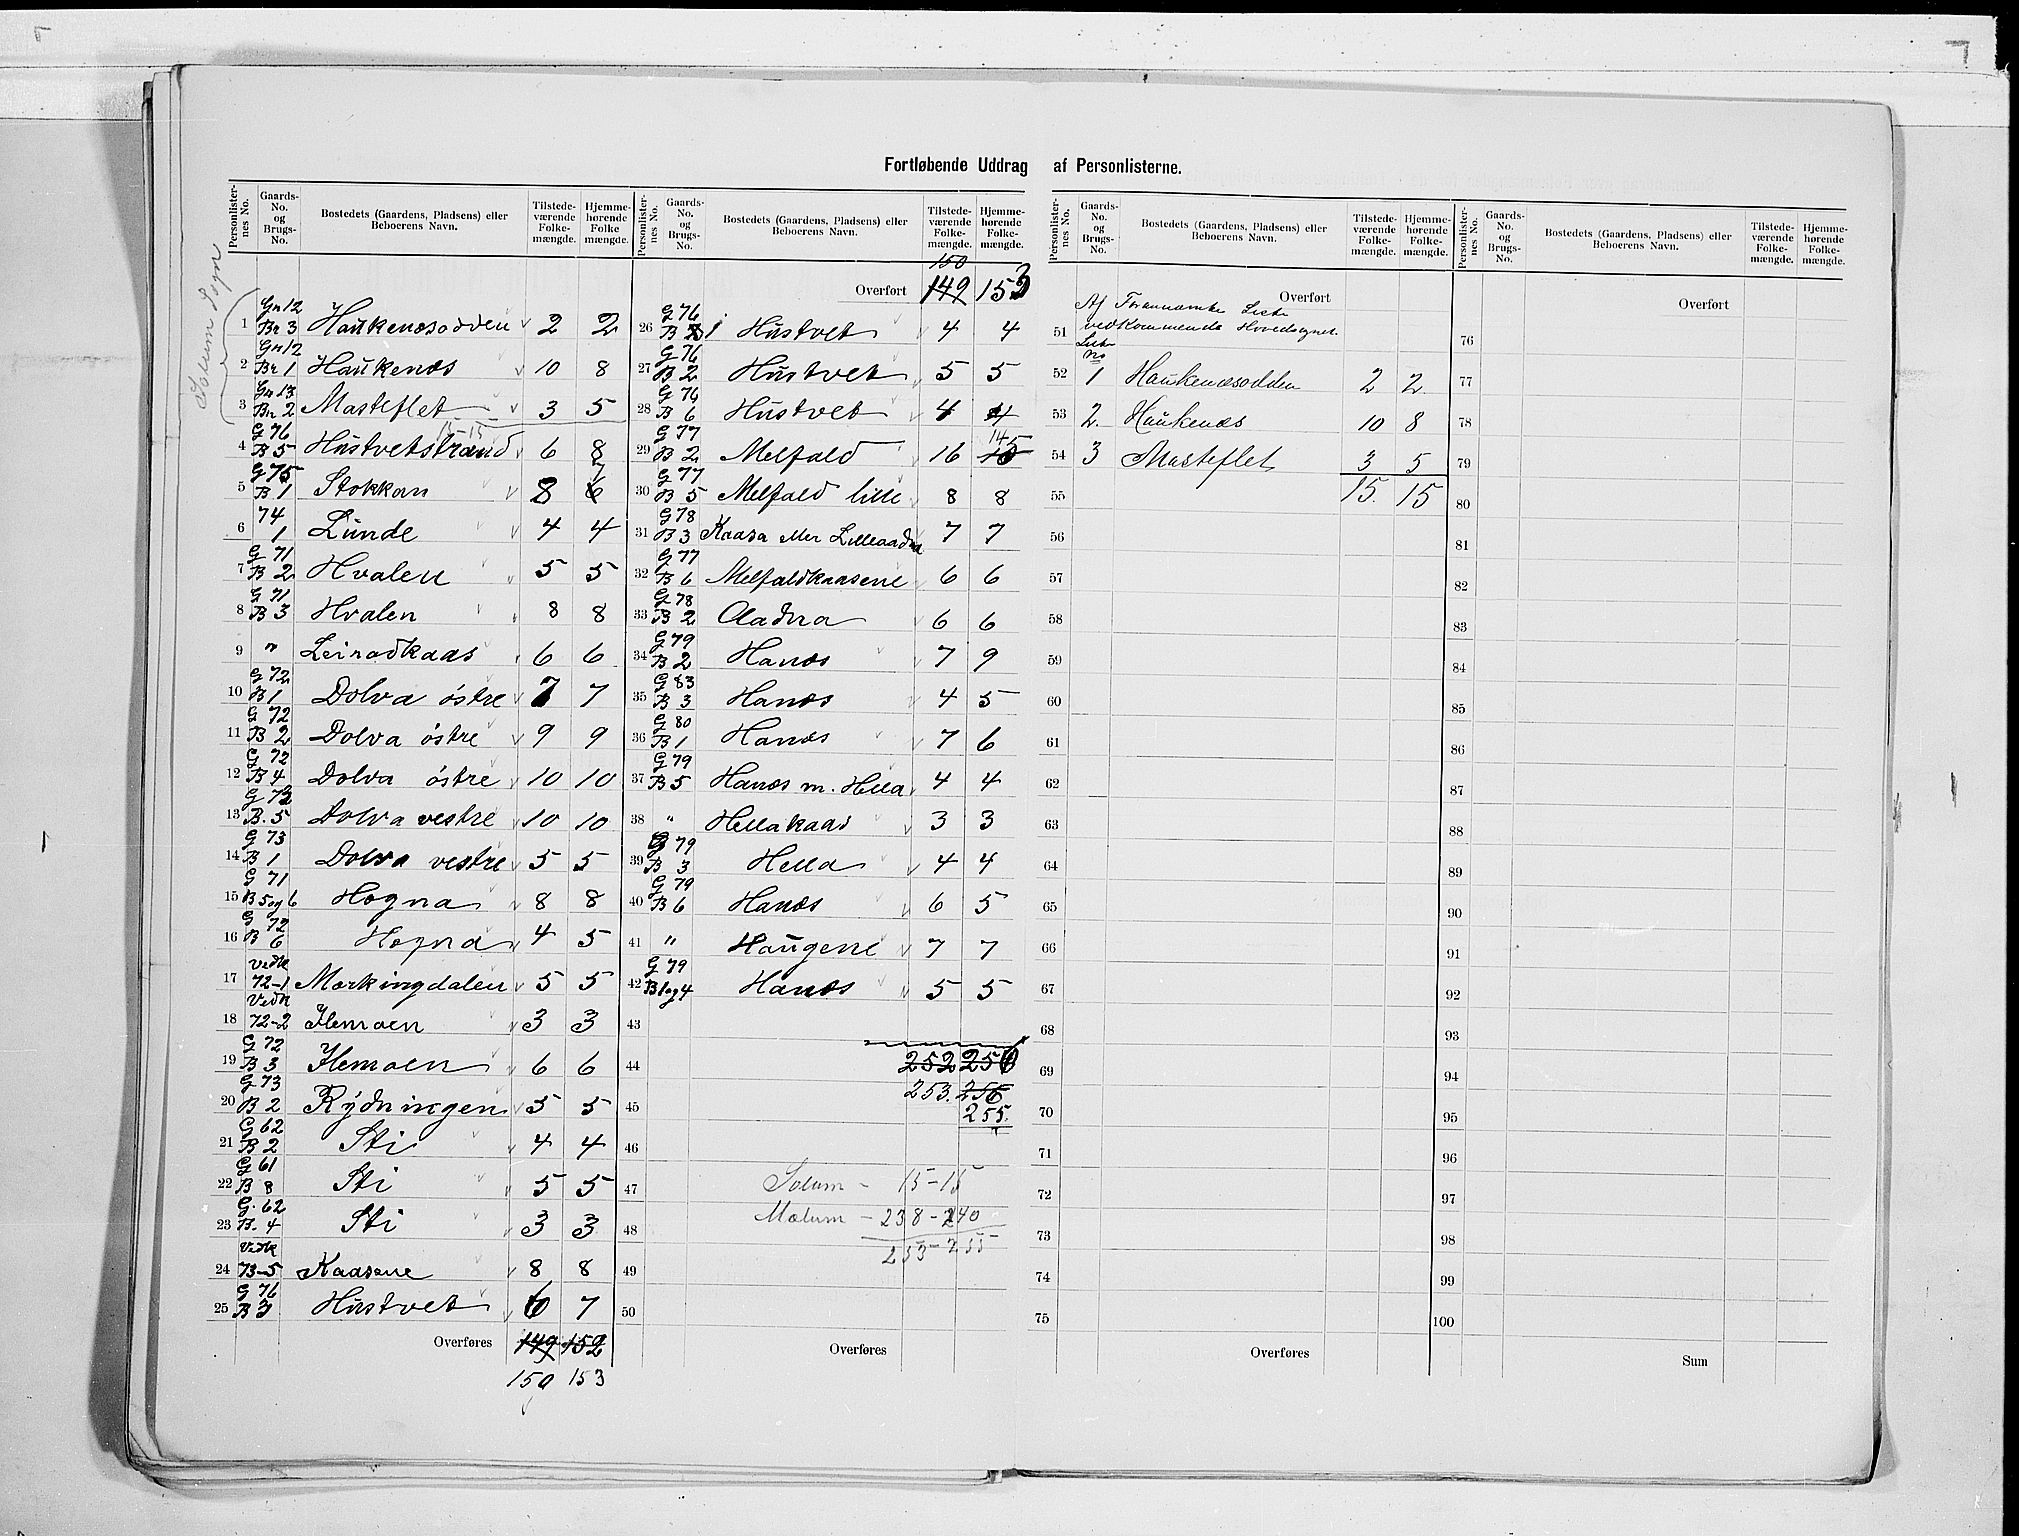 Fortløbende Uddrag af Personlisterne.
Personlister-nes No. | Gaards-No. og Brugs-No. | Bostedets (Gaardens, Pladsens) eller Beboerens Navn. | Tilstede-værende Folke-mængde. | Hjemme-hørende Folke mængde.
Solum Sogn
1 Gn 12 Br 3 Haukenæsodden 2 2
2 Gn 12 Br 1 Haukenæs 10 8
3 Gn 13 Br 2 Masteflet 3 5
15-15
4 G 76 B 5 Hustvetstrand 6 8
5 G 75 B 1 Stokkan 8 6 7
6 74 1 Lunde 4 4
7 G 71 B 2 Hvalen 5 5
8 G 71 B 3 Hvalen 8 8
9 " Leirodkaas 6 6
10 G 72 B 1 Dolva östre 7 7
11 G 72 B 2 Dolva östre 9 9
12 G 72 B 4 Dolva östre 10 10
13 G 72 B. 5 Dolva vestre 10 10
14 G 73 B 1 Dolva vestre 5 5
15 G 71 B 5 og 6 Hogna 8 8
16 G 72 B 6 Hogna 4 5
17 Vedk 72-1 Morkingdalen 5 5
18 Vedk 72-2 Hemoen 3 3
19 G 72 B 3 Hemoen 6 6
20 G 73 B 2 Rydningen 5 5
21 G 62 B 2 Sti 4 4
22 G 61 B 8 Sti 5 5
23 G. 62 B. 4 Sti 3 3
24 Vedk 73-5 Kaasene 8 8
25 G 76 B 3 Hustvet 6 7
Overføres 149 152
150 153
Personlister-nes No. | Gaards-No. og Brugs-No. | Bostedets (Gaardens, Pladsens) eller Beboerens Navn. | Tilstede-værende Folke-mængde. | Hjemme-hørende Folke-mængde.
150
Overført 149 153
26 G 76 B 1 Hustvet 4 4
27 G 76 B 2 Hustvet 5 5
28 G 76 B 6 Hustvet 4 4
29 G 77 B 2 Melfald 16 15 14
30 G 77 B 5 Melfald lille 8 8
31 G 78 B 3 Kaasa eller Lilleaadna 7 7
32 G 77 B 6 Melfaldkaasene 6 6
33 G 78 B 2 Aadna 6 6
34 G 79 B 2 Hanæs 7 9
35 G 83 B 3 Hanæs 4 5
36 G 80 B 1 Hanæs 7 6
37 G 79 B 5 Hanæs m. Hella 4 4
38 " Hellakaas 3 3
39 G 79 B 3 Hella 4 4
40 G 79 B 6 Hanæs 6 5
41 " Haugene 7 7
42 G 79 B 1 og 4 Hanæs 5 5
43
44 252 256
45 253. 256
255.
46
47 Solum - 15-15
48 Mælum - 238-240
253-255
49
50
Overføres
Personlister-nes No. | Gaards-No. og Brugs-No. | Bostedets (Gaardens, Pladsens) eller Beboerens Navn. | Tilstede-værende Folke-mængde. | Hjemme-hørende Folke-mængde.
Overført
Af Forannævnte Liste
51 vedkommende Hovedsognet
Liste
No
52 1 Haukenæsodden 2 2
53 2. Haukenæs 10 8
54 3 Masteflet 3 5
55 15. 15
56
57
58
59
60
61
62
63
64
65
66
67
68
69
70
71
72
73
74
75
Overføres
Personlister-nes No. | Gaards-No. og Brugs-No. | Bostedets (Gaardens, Pladsens) eller Beboerens Navn. | Tilstede-værende Folke-mængde. | Hjemme-hørende Folke-mængde.
Overført
76
77
78
79
80
81
82
83
84
85
86
87
88
89
90
91
92
93
94
95
96
97
98
99
100
Sum